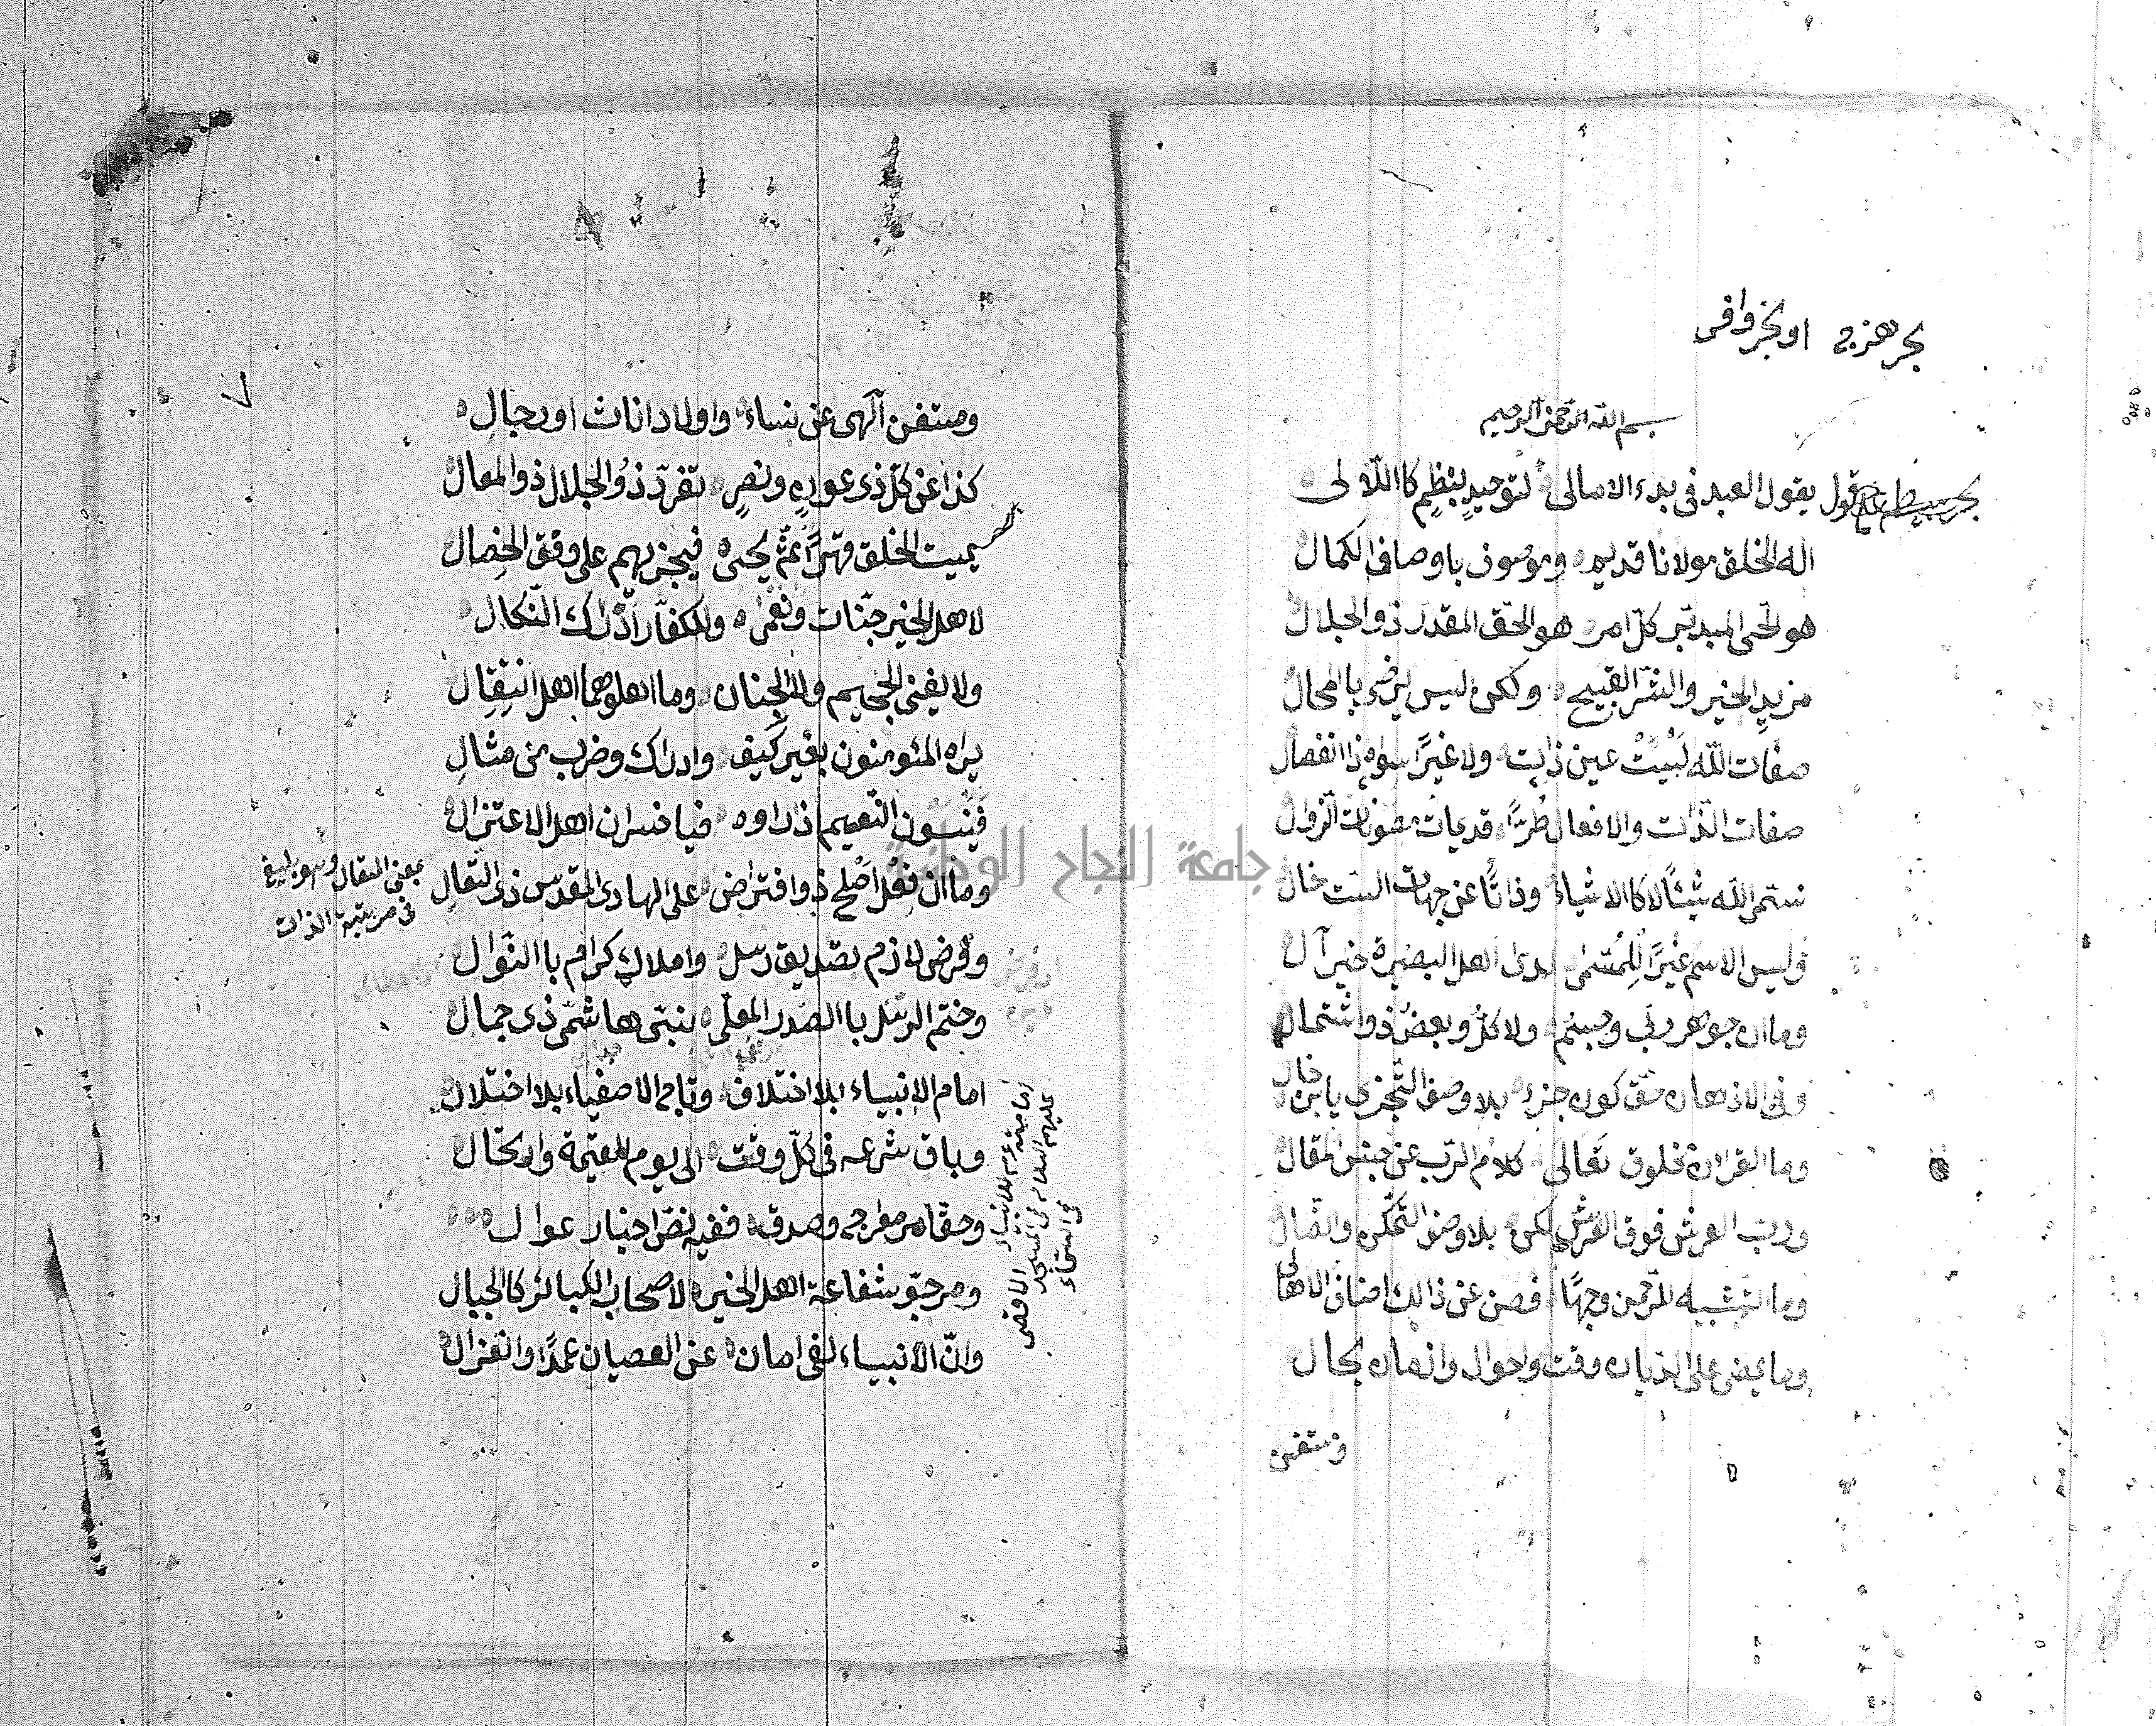 بحر هزج او بحر وافر
بسم الله الرحمن الرحيم
يقول العبد في بدء الامالى لتوحيد بنظم كاللآلى
اله الخلق مولانا قديم وموصوف باوصاف الكمال
هو الحى المدبر كل امر هو الحق المقدر ذو الجلال
مريد الخير والشر القبيح ولكن ليس يرضى بالمحال
صفات الله ليست عين ذات ولا غيرا سواه ذا انفصال
صفات الذات والافعال طرا قديمات مصونات الزوال
نسمى الله شيئا لا كالاشياء وذاتا عن جهات الست خال
وليس الاسم غيرا للمسمى لدى اهل البصيرة خير آل
وما ان جوهر ربى وجسم ولا كل وبعض ذو اشتمال
وفى الاذهان حق كون جزء بلا وصف التجزى يا ابن خال
وما القران مخلوق تعالى كلام الرب عن جنس المقال
ورب العرش فوق العرش لكن بلا وصف التمكن واتصال
وما التشبيه للرحمن وجها فصن عن ذالك اصناف الاهالى
وما يمضى على الديان وقت واحوال وازمان بحال
ومستغن
ومستغن آلهى عن نساء واولاد اناث او رجال
كذا عن كل ذى عون ونصر تفرد ذو الجلال ذو المعال
يميت الخلق قهرا ثم يحى فيجزيهم على وفق الخصال
لاهل الخير جنات ونعمى وللكفار ادراك النكال
ولا يفنى الجحيم ولا الجنان وما اهلوهما اهل انتقال
يراه المئومنون بغير كيف وادراك وضرب من مثال
فينسون النعيم اذا راوه فيا خسران اهل الاعتزال
وما ان فعل اصلح ذو افتراض على الهادى المقدس ذى التعال
بمعنى التعال وهو بليغ
فى مرتبة الذات
وفرض لازم تصديق رسل واملاك كرام بالنوال
وختم الرسل بالصدر المعلى نبى هاشمى ذى جمال
امام الانبياء بلا اختلاف وتاج الاصفياء بلا اختلال
وباق شرعه فى كل وقت الى يوم القيمة وارتحال
وحق امر معراج وصدق ففيه نص اخبار عوال
ومرجو شفاعة اهل الخير لاصحاب الكبائر كالجبال
وان الانبياء لفى امان عن العصيان عمدا وانعزال
عليهم السلام فى المسجد الاقصى
فى السماء
جامعة النجاح الوطنية